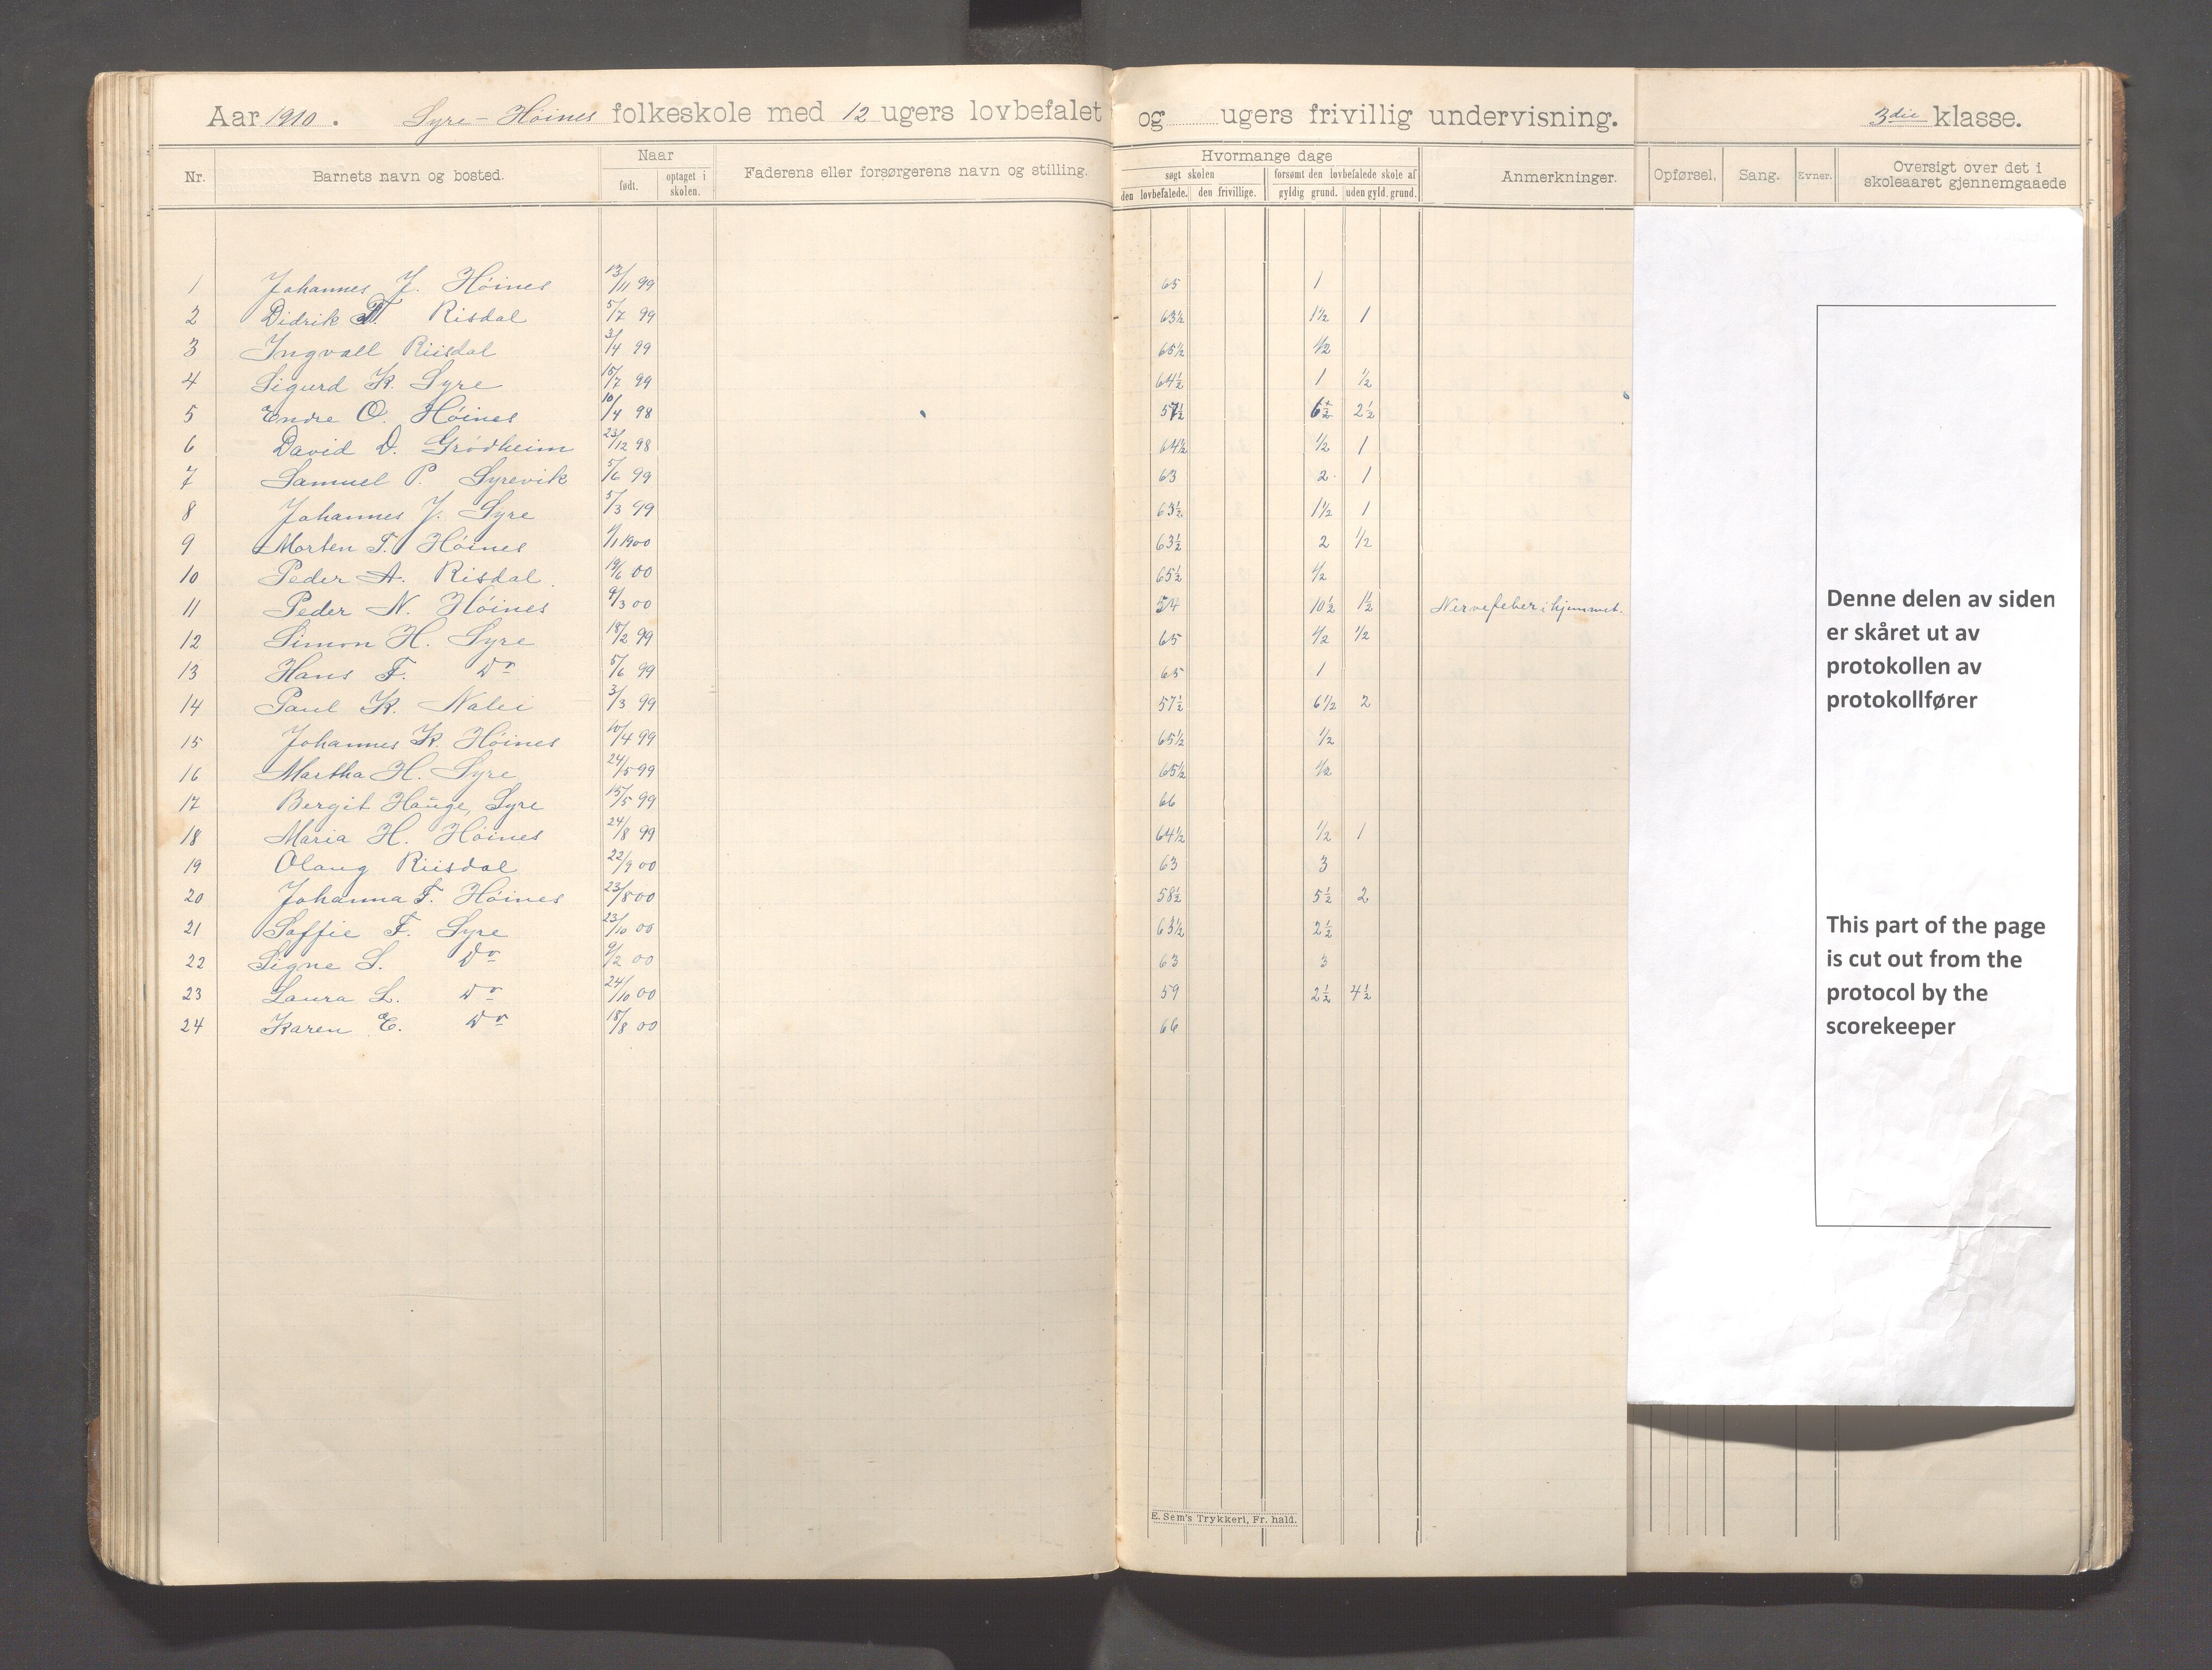 Aar 1910. Syre-Høines folkeskole med 12 ugers lovbefalet og ugers frivillig undervisning. 3die klasse.
Nr. Barnets navn og bosted. Naar født. optaget i skolen. Faderens eller forsørgerens navn og stilling. Hvormange dage søgt skolen den lovbefalede. den frivillige. forsømt den lovbefalede skole af gyldig grund. uden gyld. grund. Anmerkninger. Opførsel. Sang. Evner. Oversigt over det i skoleaaret gjennemgaaede
1 Johannes J. Høines 13/11 99 65 1
2 Didrik T. Risdal 5/7 99 63½ 1½ 1
3 Ingvall Riisdal 3/4 99 65½ ½
4 Sigurd K. Syre 15/7 99 64½ 1 ½
5 Endre O. Høines 10/4 98 57½ 6½ 2½
6 David D. Grødheim 23/12 98 64½ ½ 1
7 Samuel P. Syrevik 5/6 99 63 2 1
8 Johannes J. Syre 5/3 99 63½ 1½ 1
9 Morten T. Høines 1/1 1900 63½ 2 ½
10 Peder A. Risdal 19/6 00 65½ ½
11 Peder N. Høines 9/3 00 54 10½ 1½ Nervefeber i hjemmet.
12 Simon H. Syre 18/2 99 65 ½ ½
13 Hans F. Do 5/6 99 65 1
14 Paul K. Nalei 3/3 99 57½ 6½ 2
15 Johannes K. Høines 10/4 99 65½ ½
16 Martha H. Syre 24/5 99 65½ ½
17 Bergit Hauge, Syre 15/5 99 66
18 Maria H. Høines 24/8 99 64½ ½ 1
19 Olaug Riisdal 22/9 00 63 3
20 Johanna T. Høines 23/8 00 58½ 5½ 2
21 Soffie F. Syre 23/10 00 63½ 2½
22 Signe S. Do 9/2 00 63 3
23 Laura L. Do 24/10 00 59 2½ 4½
24 Karen E. Do 18/8 00 66
E. Sem's Trykkeri, Fr. hald.
Denne delen av siden
er skåret ut av
protokollen av
protokollfører
This part of the page
is cut out from the
protocol by the
scorekeeper